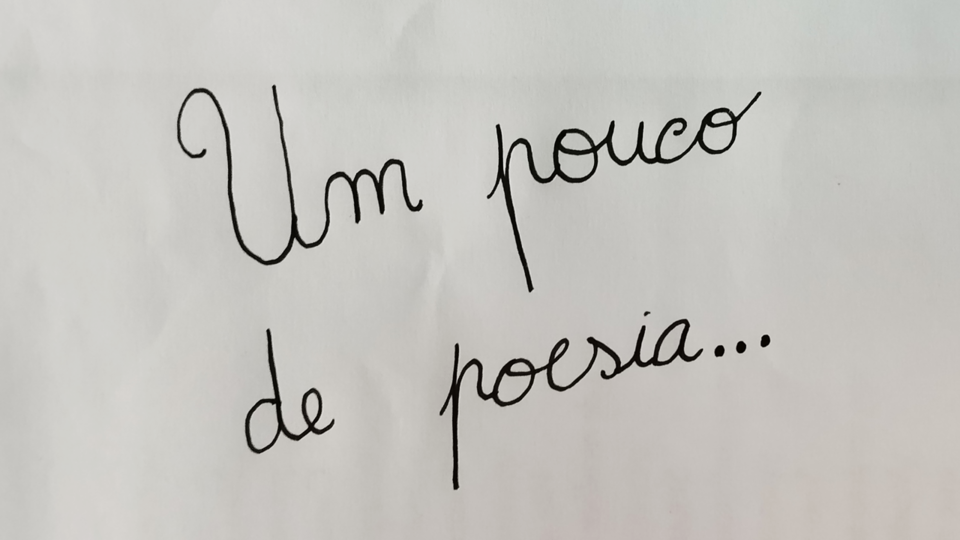 Um pouco
de poesia...